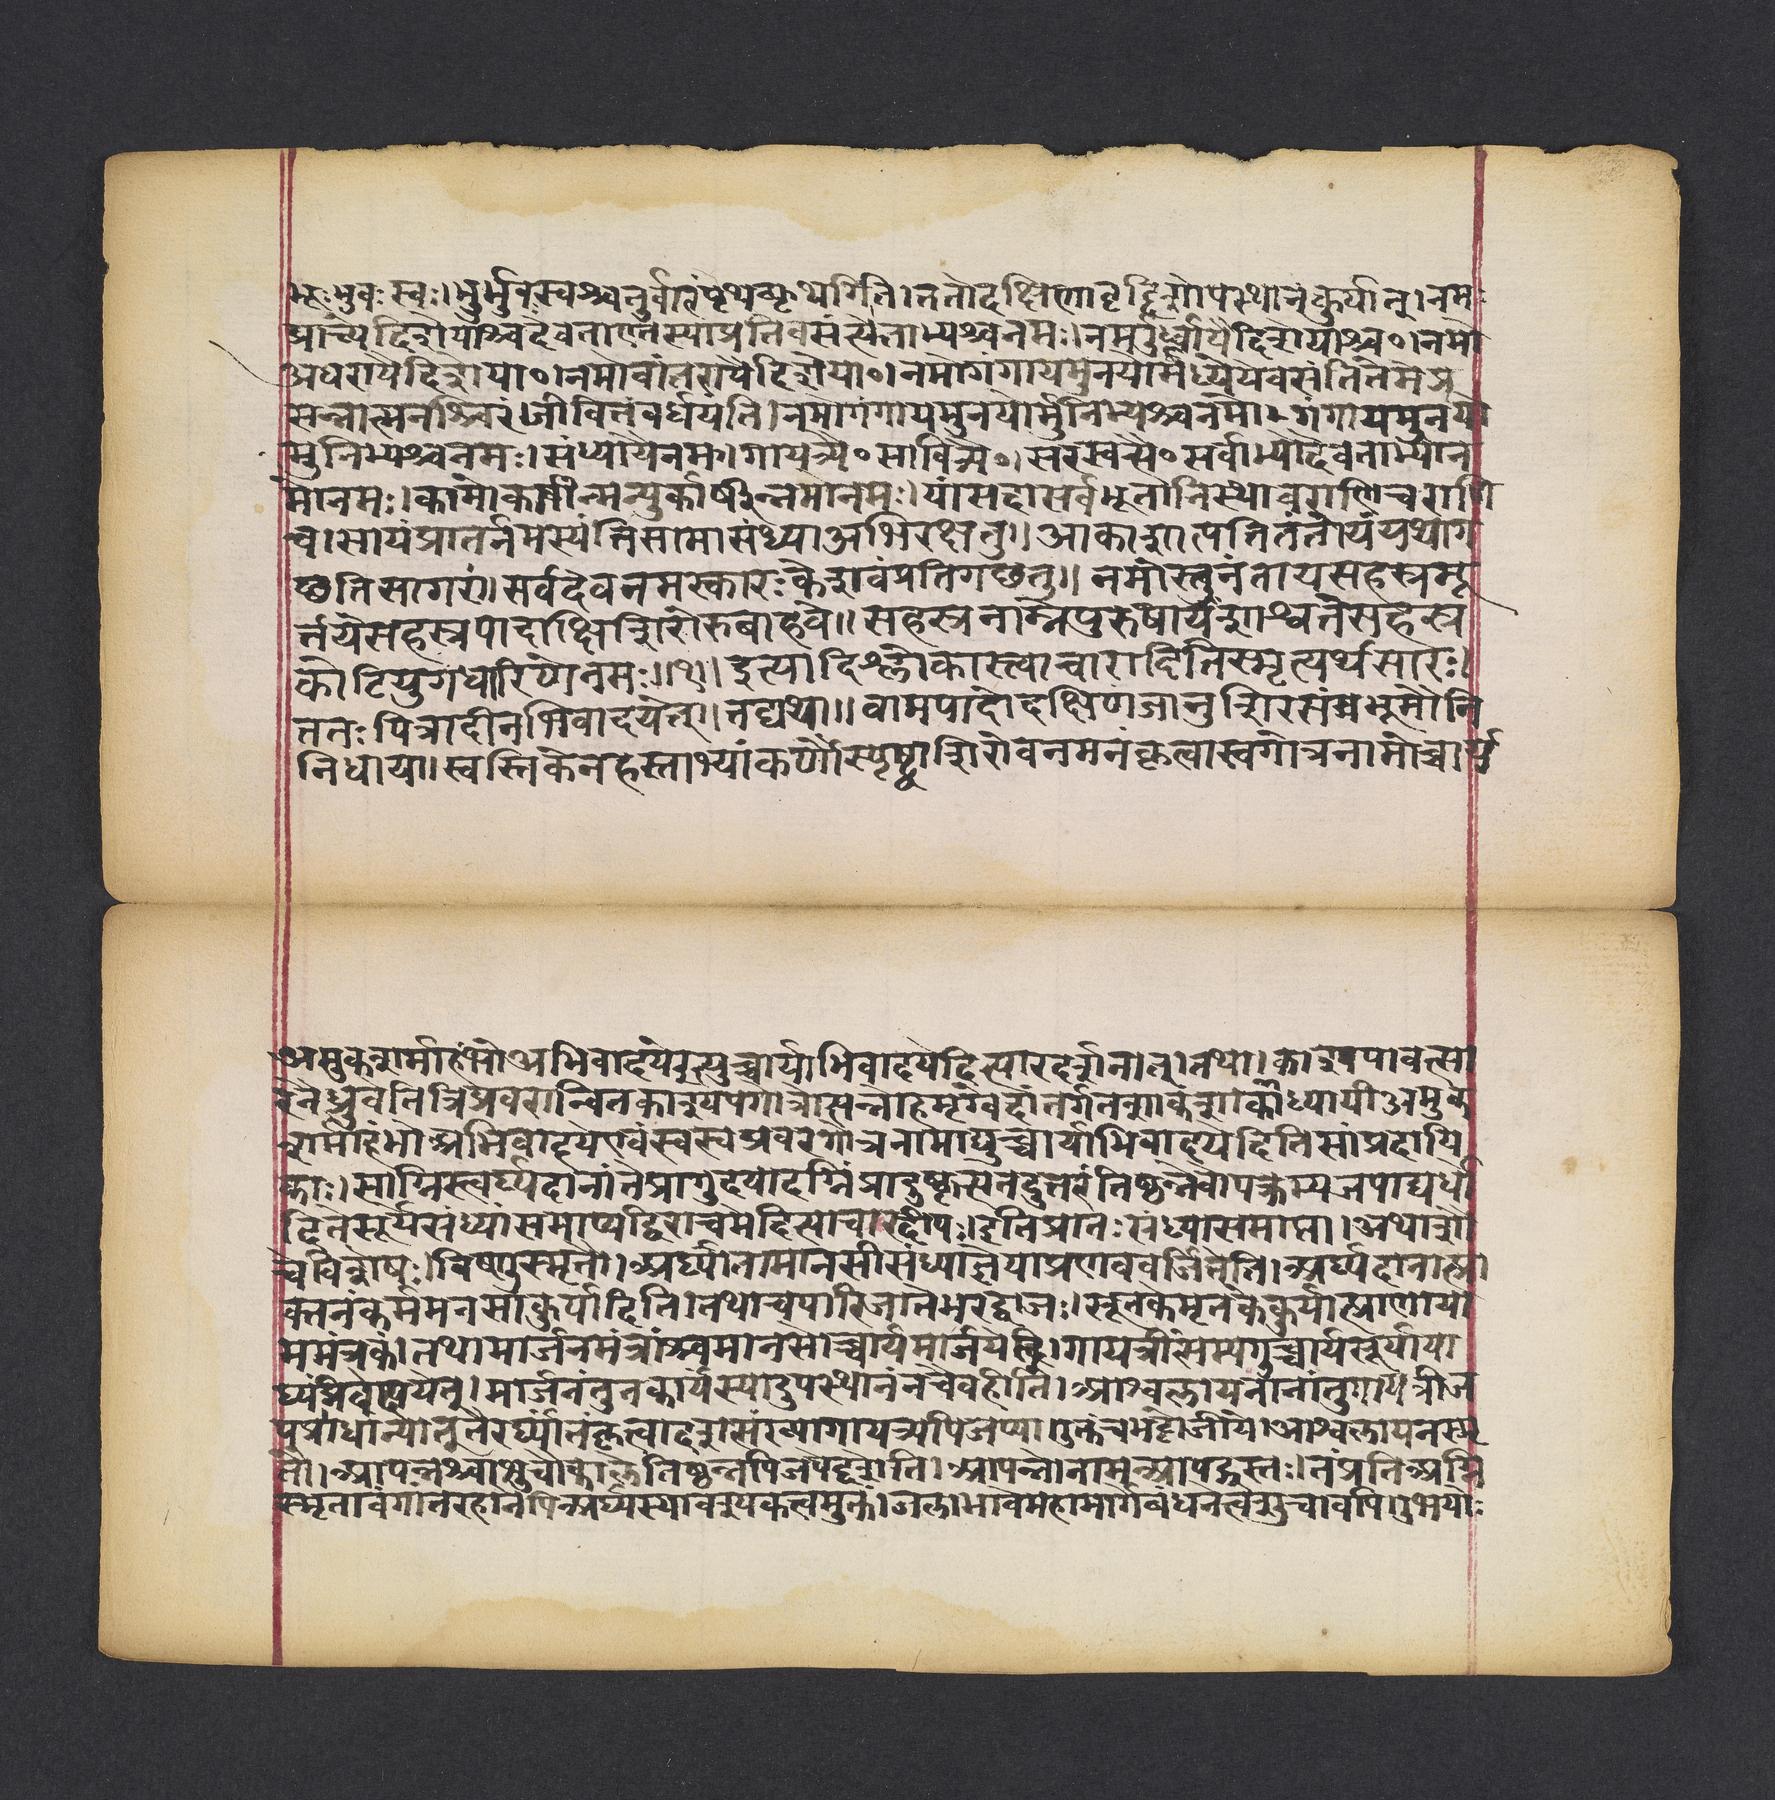 भूःभुवःस्वः।भूर्भुवःस्वश्चतुर्वारंपृथक्पृथगिति।ततोदक्षिणावृद्दिशोपस्थानंकुर्यात्।नमः
प्राच्यैदिशेयाश्चदेवताएतस्यांप्रतिवसंत्येताभ्यश्चनमः।नमऊर्ध्वायैदिशेयाश्च०।नमो
अधरायैदिशेया०।नमोवांतरायैदिशेया०।नमोगंगायमुनयोर्मध्येयेवसंतितेमेप्र
सन्नात्मनश्चिरंजीवितंवर्धयंति।नमोगंगायमुनयोर्मुनिभ्यश्चनमो।गंगायमुनयो
मुनिभ्यश्चनमः।संध्यायैनमः।गायत्र्यै०सावित्र्यै०।सरस्वत्यै०सर्वाभ्योदेवताभ्योन
मोनमः।कामोकार्षीन्मन्युर्कार्षीन्नमोनमः।यांसदासर्वभूतानिस्थावराणिचराणि
च।सायंप्रातर्नमस्यंतिसामासंध्याअभिरक्षतु॥आकाशात्पतितंतोयंयथाग
छतिसागरं।सर्वदेवनमस्कारःकेशवंप्रतिगछतु॥नमोस्त्वनंतायसहस्रमू
र्तयेसहस्रपादाक्षिशिरोरुबाहवे॥सहस्रनाम्नेपुरुषायशाश्वतेसहस्र
कोटियुगधारिणेनमः॥१॥इत्यादिश्लोकास्त्वाचारादितिस्मृत्यर्थसारः।
ततःपित्रादीनभिवादयेत्॥तद्यथा॥वामपादोदक्षिणजानुशिरसंम्नभूमौनि
निधाय॥स्वस्तिकेनहस्ताभ्यांकर्णौस्पृष्ट्वाशिरोवनमनंकृत्वास्वगोत्रनामोच्चार्य
अमुकशर्माहंभोअभिवादयेइत्युच्चार्याभिवादयेदित्यारदर्शनात्।तथा।काश्यपावत्सा
रनैध्रुवेतित्रिप्रवरान्वितकाश्यपगोत्रोत्पन्नोहमृग्वेदांतर्गतशाकलशाखाध्यायीअमुक
शर्माहंभोअभिवादयेएवंस्वस्वप्रवरगोत्रनामाद्युच्चार्याभिवादयेदितिसांप्रदायि
काः।साग्निस्त्वर्घ्यदानांतेप्रागुदयादग्निंप्रादुष्कृत्यतदुत्तरंतिष्ठन्नेवोपक्रम्यजपाद्यर्धो
दितेसूर्येसंध्यांसमाप्यद्विराचमेदित्याचारदीपः।इतिप्रातःसंध्यासमाप्ता।अथाशौ
चेविशेषः।विष्णुस्मृतौ।अर्घ्यांतामानसीसंध्याज्ञेयाप्रणववर्जितेति।अर्घ्यदानात्प्रा
क्तनंकर्ममनसाकुर्यादिति।तथाचपारिजातेभरद्वाजः।सूतकेमृतकेकुर्यात्प्राणाया
ममंत्रकं।तथामार्जनमंत्रांश्चमानसोच्चार्यमार्जयेत्।गायत्रींसम्यगुच्चार्यसूर्याया
र्घ्यंनिवेदयेत्।मार्जनंतुनकार्यंस्यादुपस्थानंनचैवहीति।आश्वलायनानांतुगायत्रीज
पप्राधान्यात्तैरर्घ्यांतंकृत्वादशसंख्यागायत्र्यपिजप्या।उक्तंचभट्टोजीये।आश्वलायनस्मृ
तौ।आपन्नश्चाशुचौकालेतिष्ठन्नपिजपेद्दशेति।आपन्नोनामआपद्ग्रस्तः।तंप्रतिअत्रि
स्मृतावंगांतरहानेपिअर्घ्यस्यावश्यकत्वमुक्तं।जलाभावेमहामार्गेबंधनेत्वशुचावपि।उभयोः